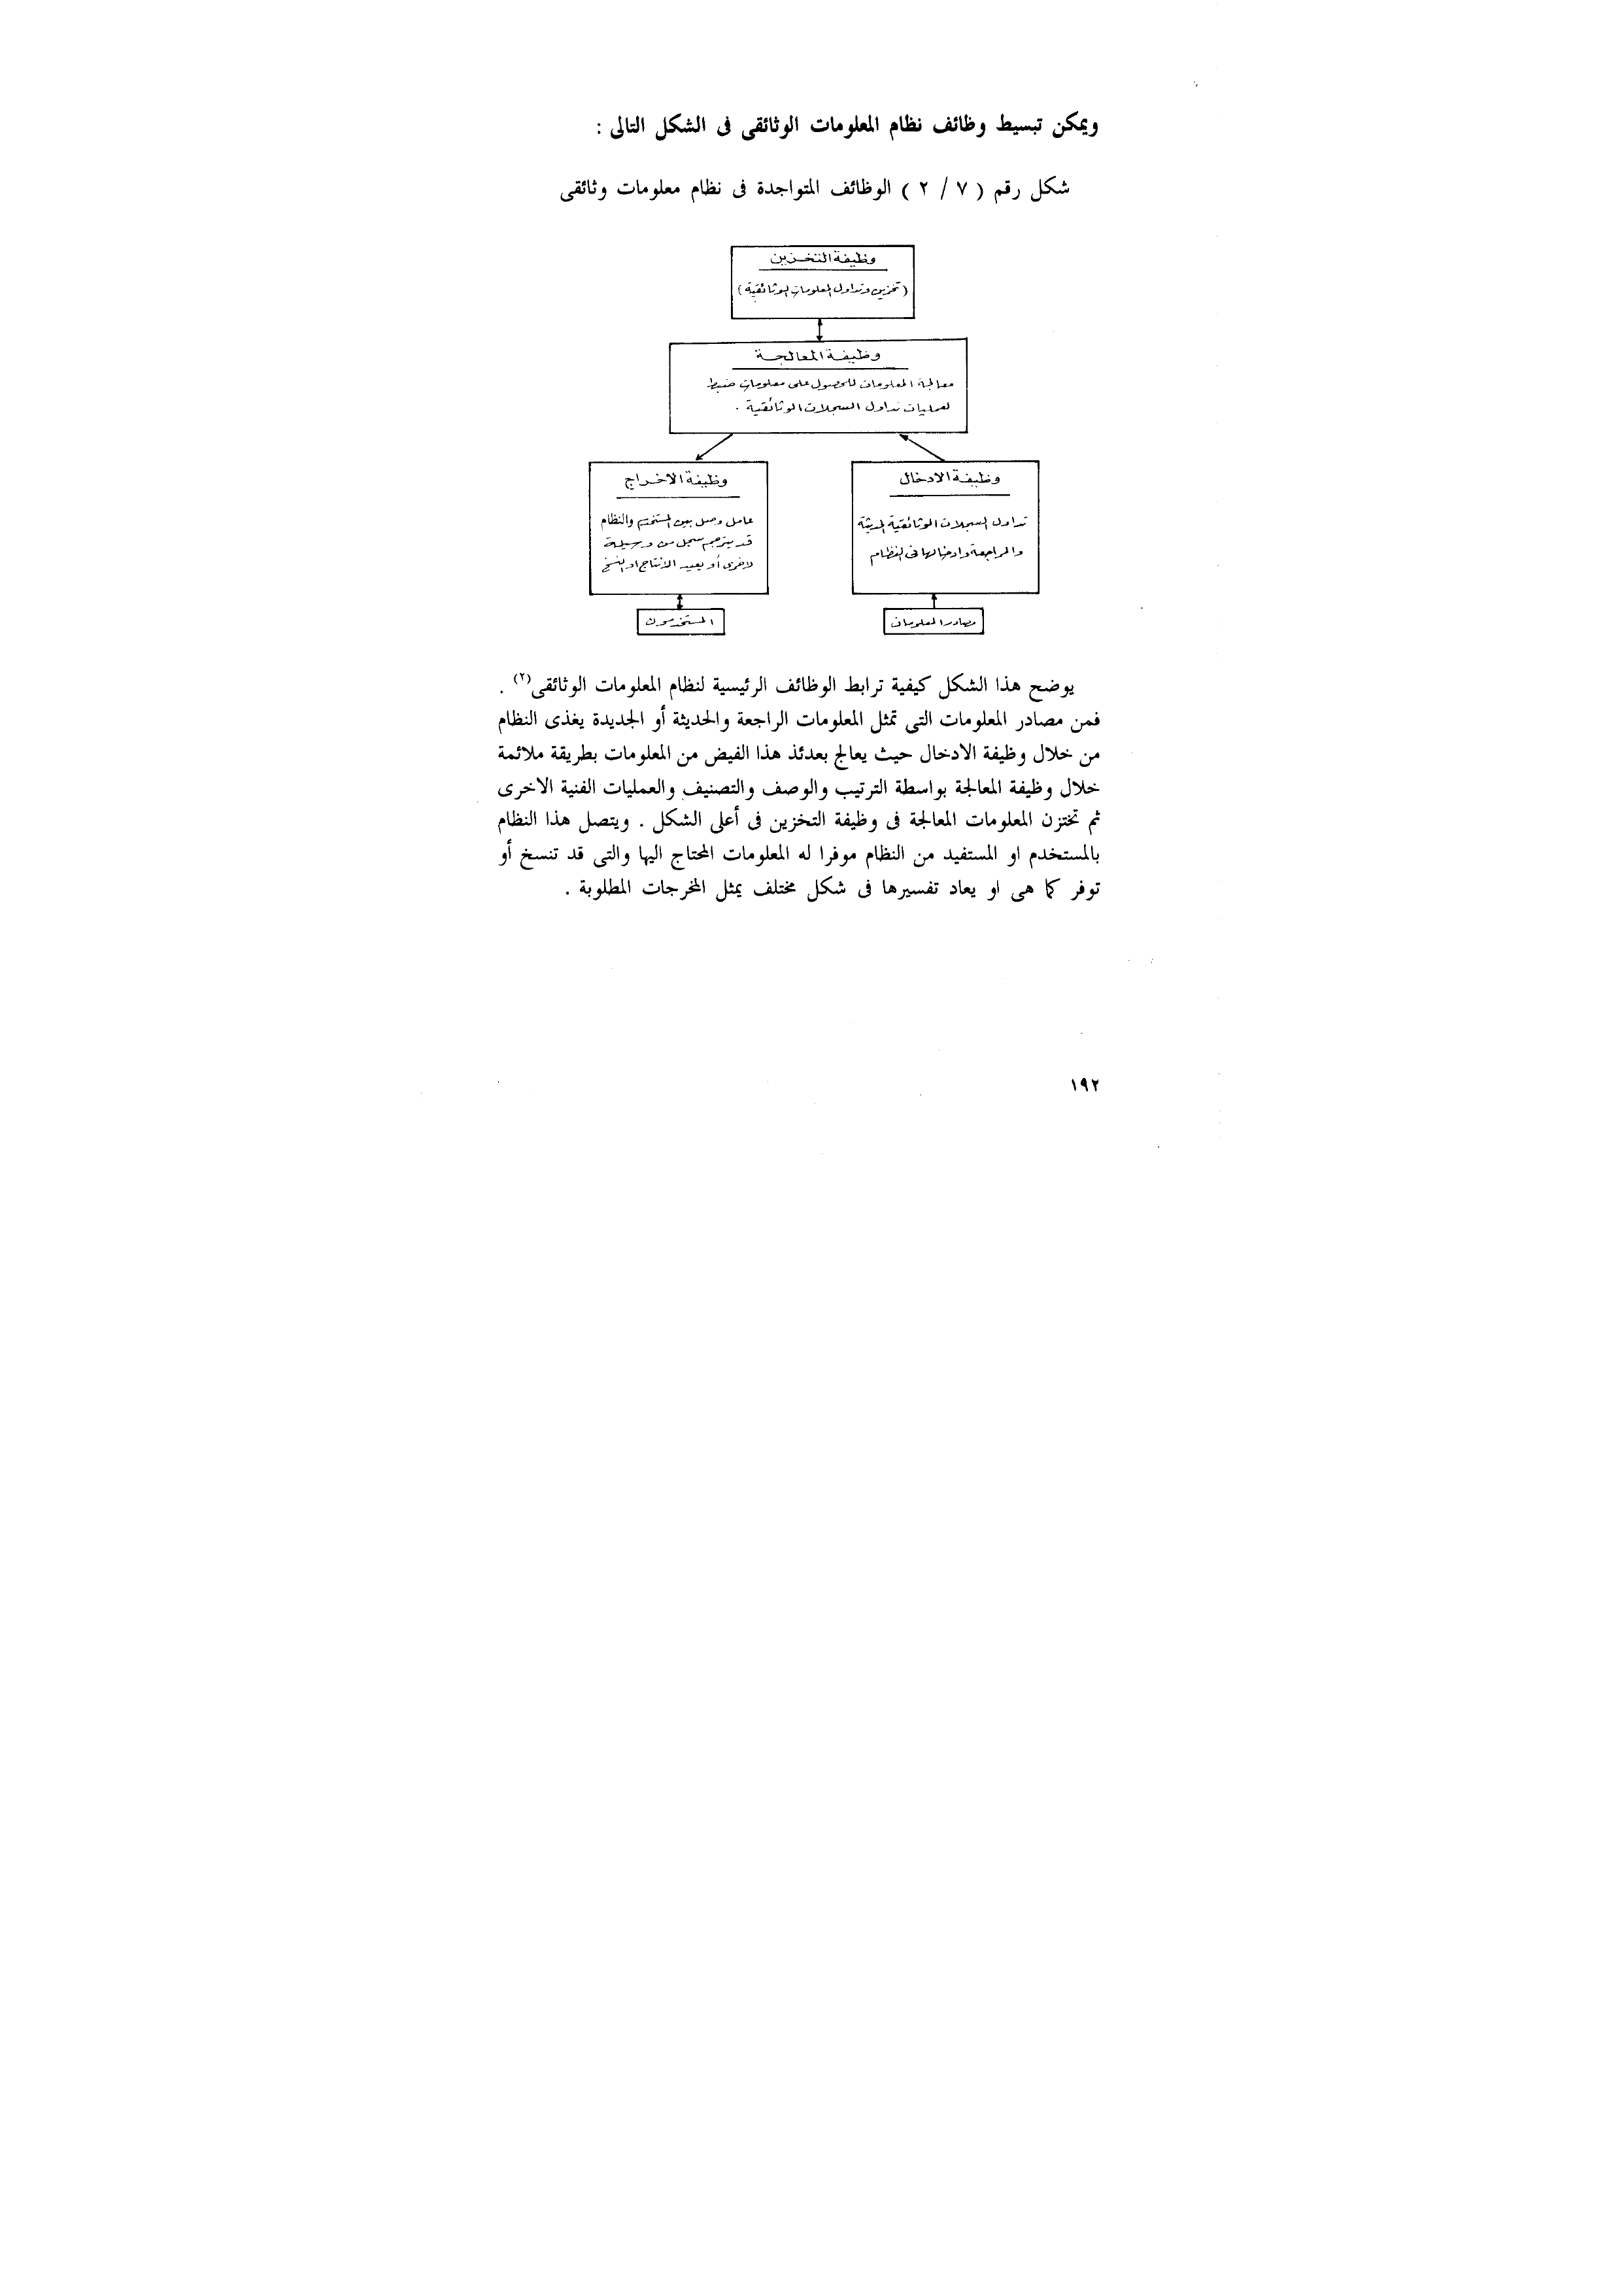 ويمكن تبسيط وظائف نظام المعلومات الوثائقى فى الشكل التالى :
شكل رقم ( ٧ / ٢ ) الوظائف المتواجدة فى نظام معلومات وثائقى
وظيفة التخزين
( تخزين وتداول المعلومات الوثائقية )
وظيفة المعالجة
معالجة المعلومات للحصول على معلومات ضبط
لعمليات تداول السجلات الوثائقية .
وظيفة الادخال
تداول السجلات الوثائقية الحديثة
والراجعة وادخالها فى النظام
وظيفة الاخراج
عامل وصل بين المستخدم والنظام
قد يترجم سجل من وسيلة
لاخرى أو يعيد الانتاج او النسخ
مصادر المعلومات
المستخدمون
يوضح هذا الشكل كيفية ترابط الوظائف الرئيسية لنظام المعلومات الوثائقى(٢) .
فمن مصادر المعلومات التى تمثل المعلومات الراجعة والحديثة أو الجديدة يغذى النظام
من خلال وظيفة الادخال حيث يعالج بعدئذ هذا الفيض من المعلومات بطريقة ملائمة
خلال وظيفة المعالجة بواسطة الترتيب والوصف والتصنيف والعمليات الفنية الاخرى
ثم تختزن المعلومات المعالجة فى وظيفة التخزين فى أعلى الشكل . ويتصل هذا النظام
بالمستخدم او المستفيد من النظام موفرا له المعلومات المحتاج اليها والتى قد تنسخ أو
توفر كما هى او يعاد تفسيرها فى شكل مختلف يمثل المخرجات المطلوبة .
١٩٢